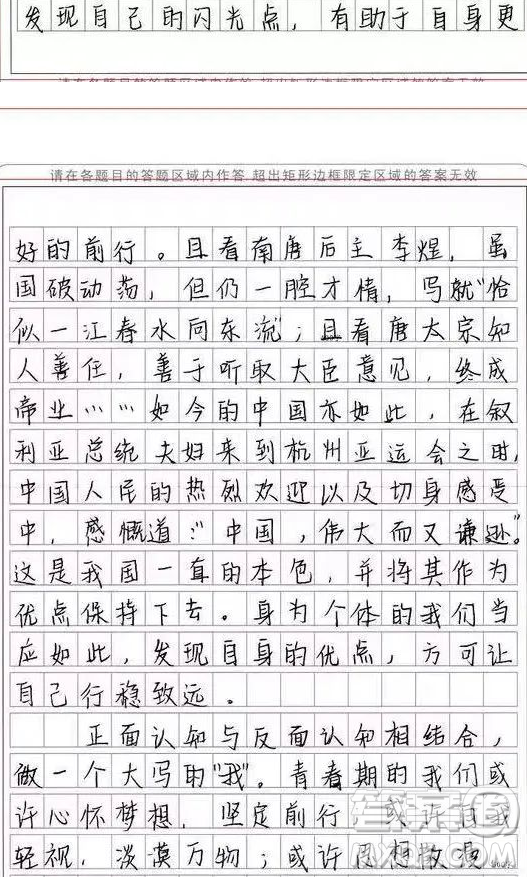 发现自己的闪光点，有助于自身更
请在各题目的答题区域内作答，超出矩形边框限定区域的答案无效
请在各题目的答题区域内作答，超出矩形边框限定区域的答案无效
好的前行。且看南唐后主李煜，虽
国破动荡，但仍一腔才情，写就“恰
似一江春水向东流”；且看唐太宗知
人善任，善于听取大臣意见，终成
帝业……如今的中国亦如此，在叙
利亚总统夫妇来到杭州亚运会之时，
中国人民的热烈欢迎以及切身感受
中，感慨道：“中国，伟大而又谦逊”。
这是我国一直的本色，并将其作为
优点保持下去。身为个体的我们当
应如此，发现自身的优点，方可让
自己行稳致远。
正面认知与反面认知相结合，
做一个大写的“我”。青春期的我们或
许心怀梦想，坚定前行，或许自我
轻视，淡漠万物；或许思想散漫